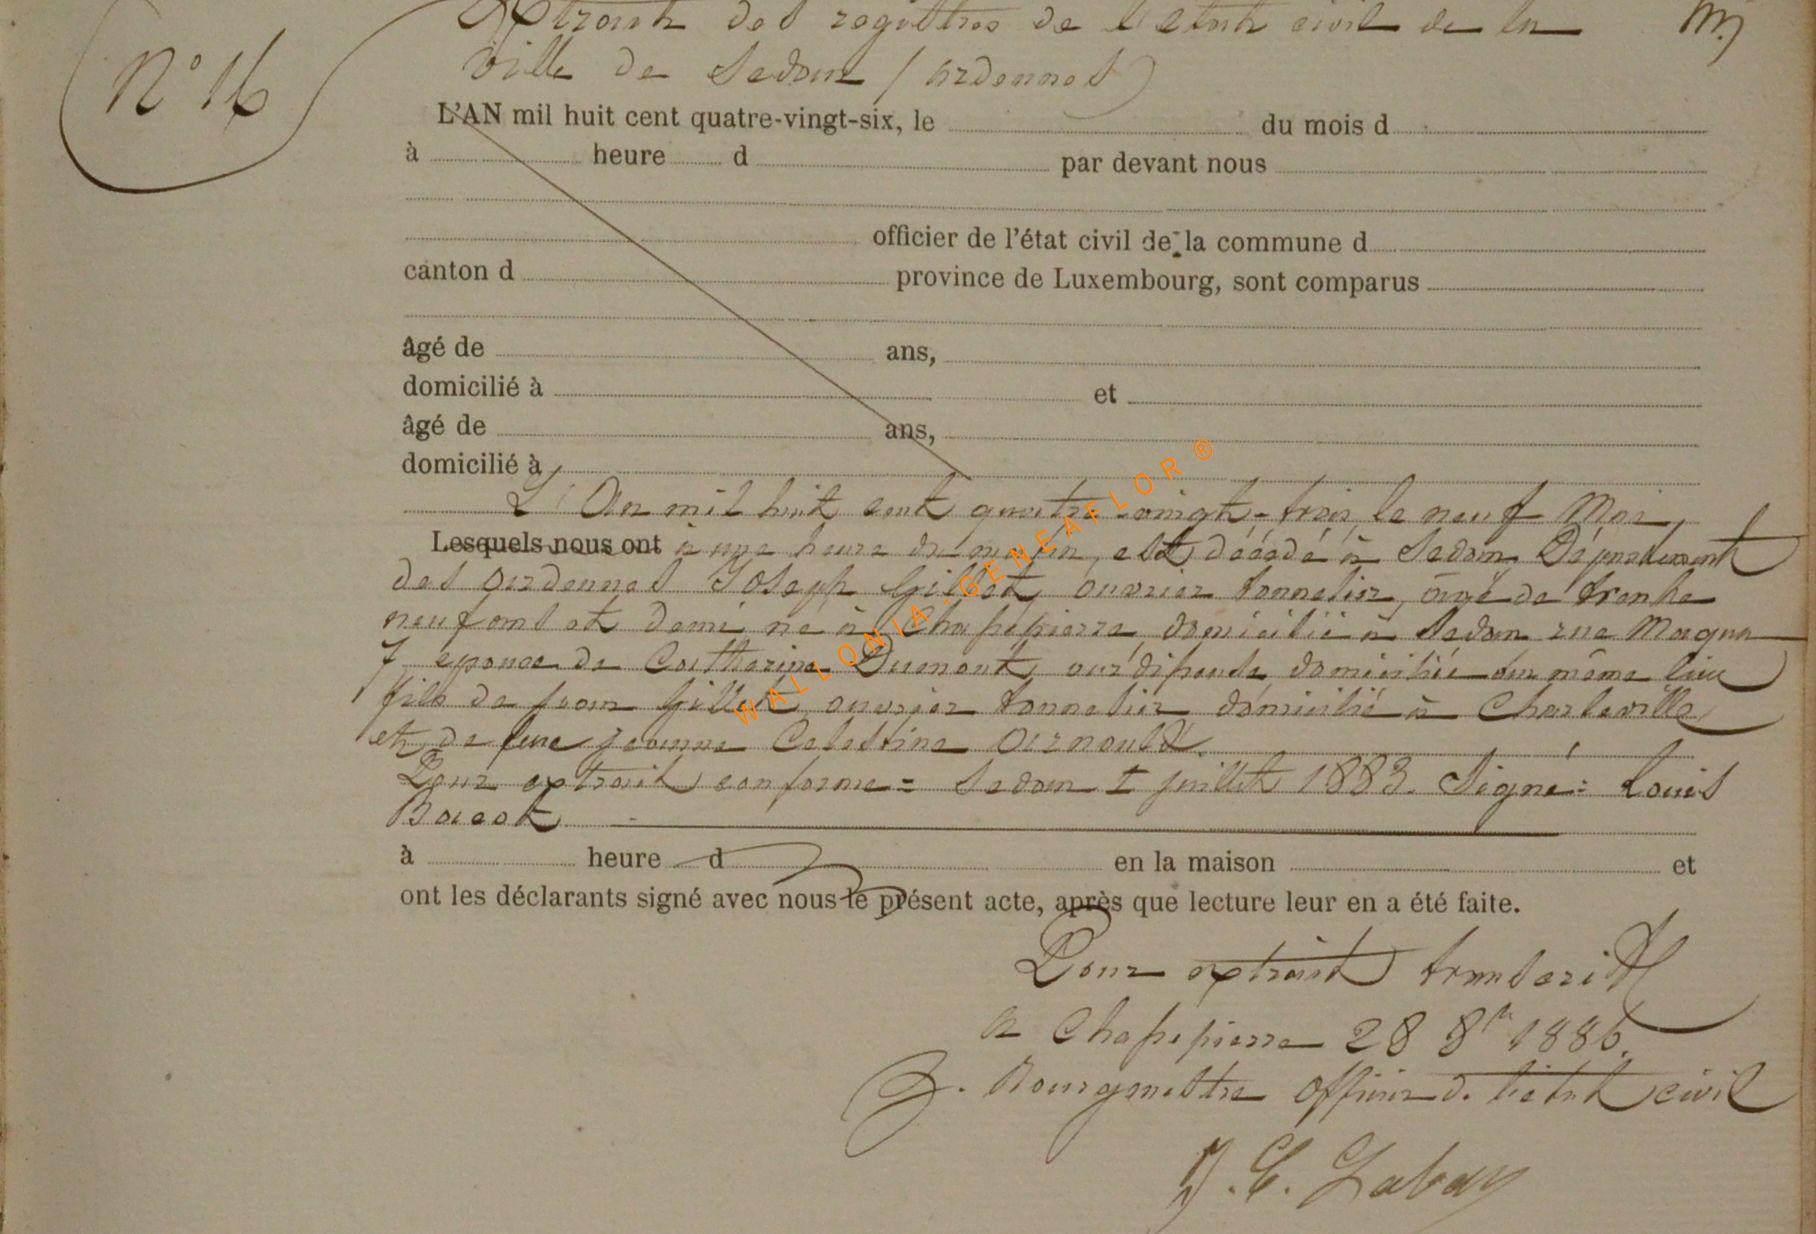 N° 16
Extrait des registres de l'état civil de la
Ville de Sedan (Ardennes)
L'AN mil huit cent quatre-vingt-six, le du mois d
à heure d par devant nous
officier de l'état civil de la commune d
canton d province de Luxembourg, sont comparus
âgé de ans,
domicilié à et
âgé de ans,
domicilié à
L'An mil huit cent quatre-vingt-trois, le neuf Mai,
Lesquels nous ont à une heure du matin, est décédé à Sedan, Département
des Ardennes Joseph Gillet, ouvrier tonnelier, âgé de trente
neuf ans et demi né à Chassepierre, domicilié à Sedan rue Maqua
7 epoux de Catherine Dumont, ourdisseuse domiciliée au même lieu
fils de Jean Gillet, ouvrier tonnelier domicilié à Charleville
et de feue Jeanne Celestine Arnould.
Pour extrait conforme = Sedan juillet 1883. Signé: Louis
Bacot
à heure d en la maison et
ont les déclarants signé avec nous le présent acte, après que lecture leur en a été faite.
Pour extrait transcrit
à Chassepierre 28 8bre 1886.
Bourgmestre officier de l'état civil
WALLONIA-GENEAFLOR®